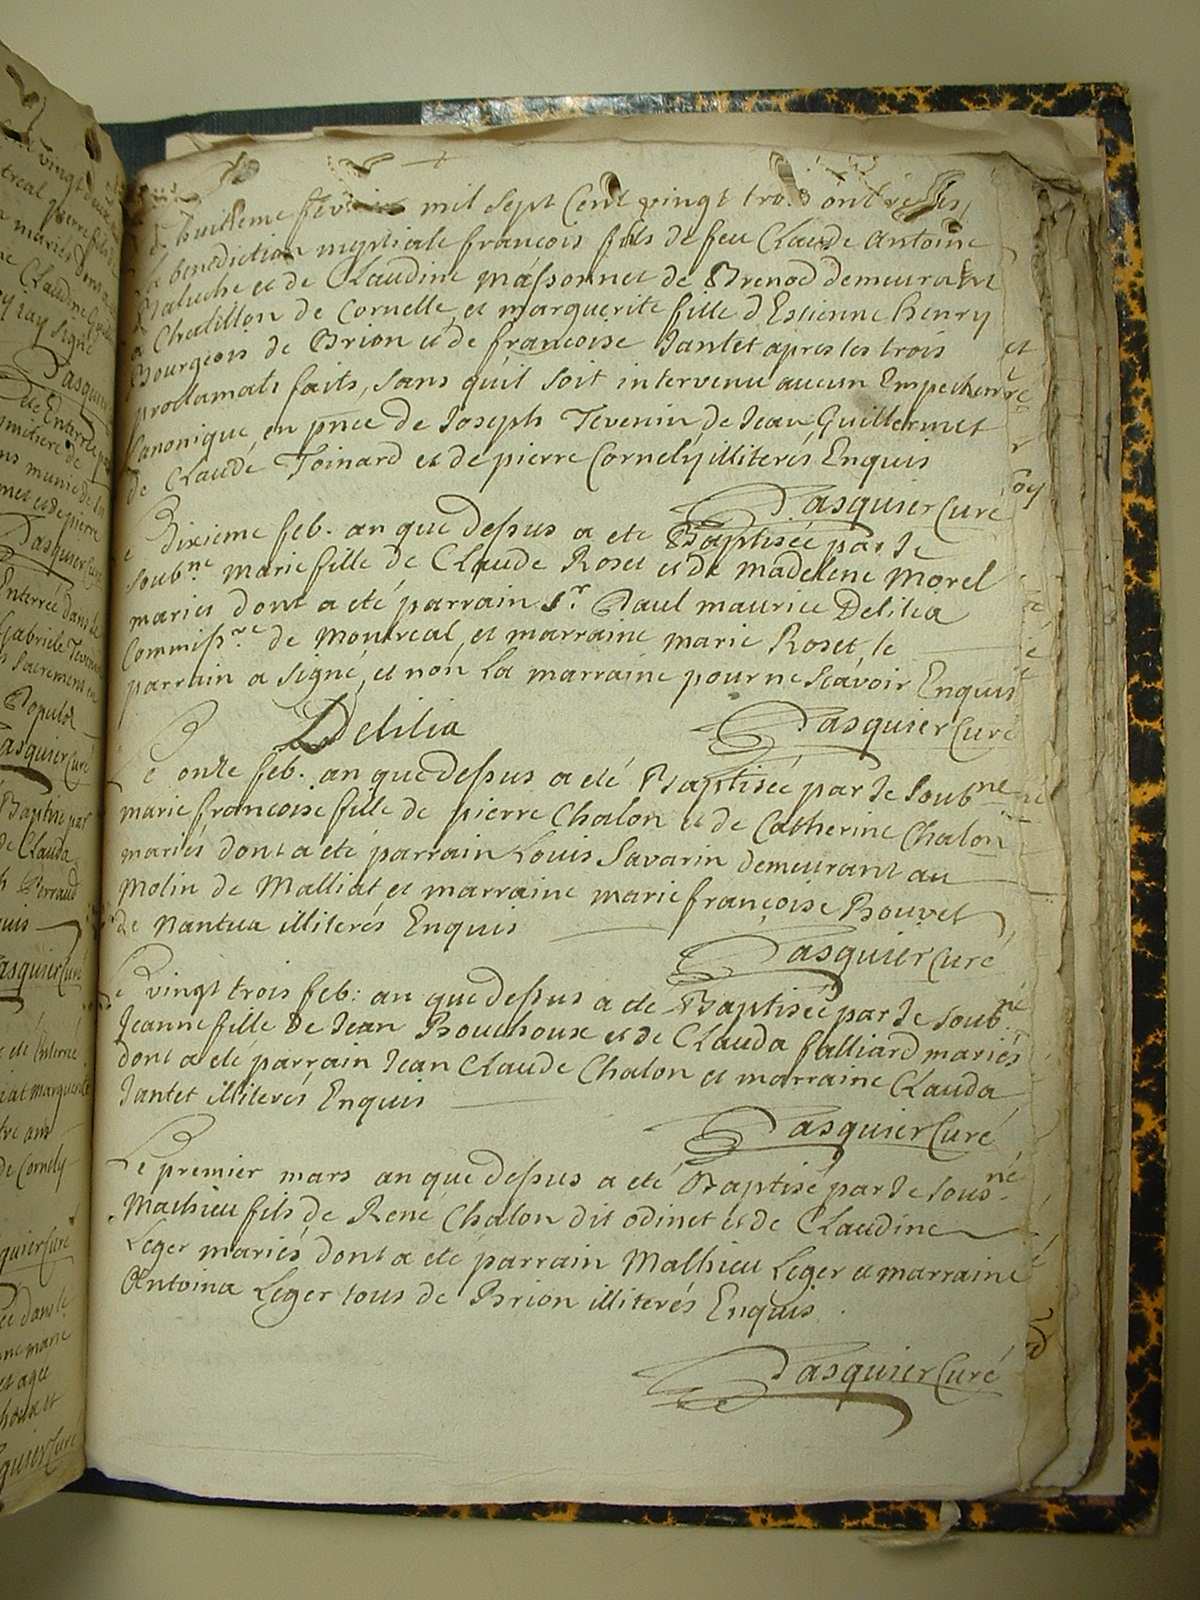 Le huitieme fevrier mil sept Cent vingt trois ont
la benediction nuptiale françois fils de feu Claude Antoine
et de Claudine Massonnet de Brenod demeurant
a Chatillon de Cornelle, et marguerite fille d'Estienne henry
Bourgeois de Brion et de françoise Jantet apres les trois
proclamats faits, sans quil soit intervenu aucun Empechemre
Canonique, en pnce de Joseph Tevenin de Jean Guillermet
de Claude Toinard et de pierre Cornely illiterés Enquis
Pasquier Curé
Le Dixieme feb. an que dessus a ete Baptisée par le
soubne marie fille de Claude Roset et de madelene Morel
mariés dont a été parrain Sr. Paul maurice Delilia
Commissre de Montreal, et marraine marie Roset, le
parrain a signé, et non la marraine pour ne scavoir Enquis
Delilia Pasquier Curé
Le onze feb. an que dessus a eté Baptisée par le soubne
marie françoise fille de pierre Chalon et de Catherine Chalon
mariés dont a eté parrain Louis Savarin demeurant au
Molin de Malliat et marraine marie françoise Bouvet
de Nantua illiterés Enquis
Pasquier Curé
Le vingt trois feb: an que dessus a eté Baptisée par le soubné
Jeanne fille de Jean Bouchoux et de Clauda falliard mariés
dont a eté parrain Jean Claude Chalon et marraine Clauda
Jantet illiterés Enquis
Pasquier Curé
Le premier mars an que dessus a eté Baptisé par le sousné
Mathieu fils de René Chalon dit odinet et de Claudine
Leger mariés dont a eté parrain Mathieu Leger et marraine
Antoina Leger tous de Brion illiterés Enquis.
Pasquier Curé